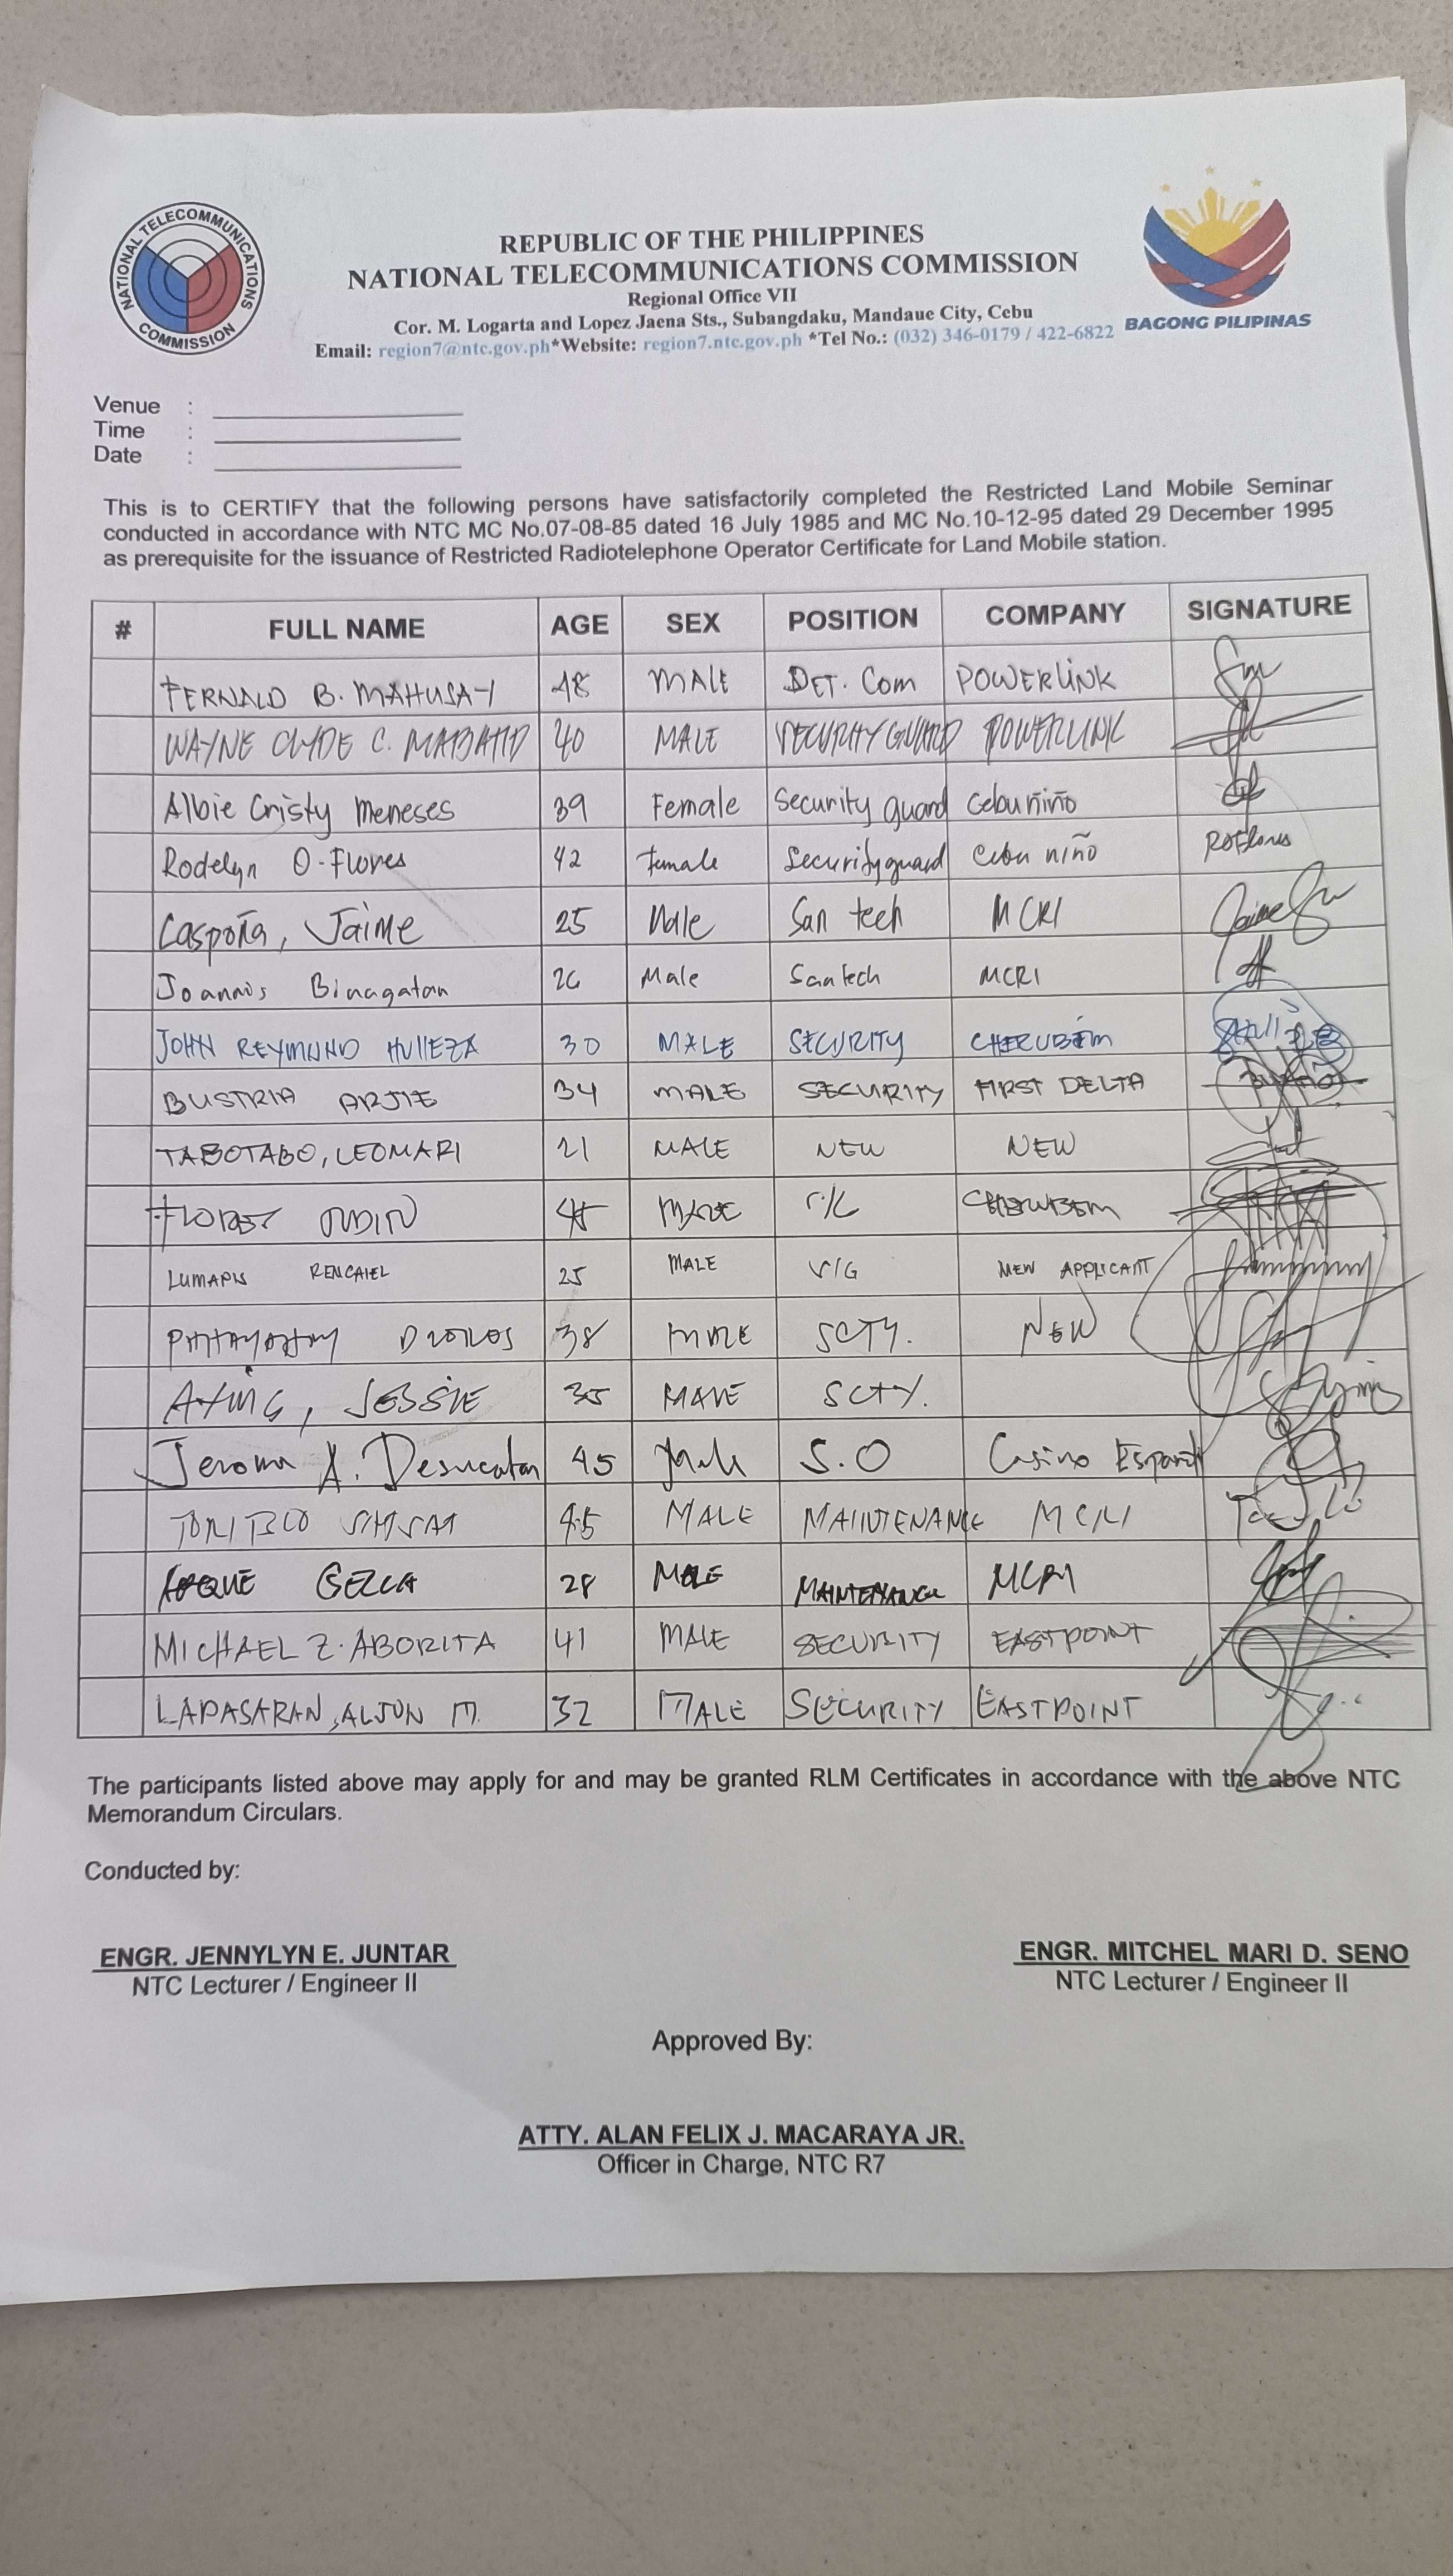 NATIONAL TELECOMMUNICATIONS COMMISSION
REPUBLIC OF THE PHILIPPINES
NATIONAL TELECOMMUNICATIONS COMMISSION
Regional Office VII
Cor. M. Logarta and Lopez Jaena Sts., Subangdaku, Mandaue City, Cebu
Email: region7@ntc.gov.ph*Website: region7.ntc.gov.ph *Tel No.: (032) 346-0179 / 422-6822
BAGONG PILIPINAS
Venue :
Time :
Date :
This is to CERTIFY that the following persons have satisfactorily completed the Restricted Land Mobile Seminar
conducted in accordance with NTC MC No.07-08-85 dated 16 July 1985 and MC No.10-12-95 dated 29 December 1995
as prerequisite for the issuance of Restricted Radiotelephone Operator Certificate for Land Mobile station.
# FULL NAME AGE SEX POSITION COMPANY SIGNATURE
FERNALD B. MAHUSAY 48 MALE DET. Com POWERLINK
WAYNE CLYDE C. MABATID 40 MALE SECURITY GUARD POWERLINK
Albie Cristy Meneses 39 Female Security guard Cebu niño
Rodelyn O. Flores 42 Female Security guard Cebu niño ROFlores
Caspoña, Jaime 25 Male San tech MCRI
Joannis Binagatan 26 Male San tech MCRI
JOHN REYMUND HULLEZA 30 MALE SECURITY CHERUBIM
BUSTRIA ARJIE 34 MALE SECURITY FIRST DELTA
TABOTABO, LEOMARI 21 MALE NEW NEW
MALE CHERUBIM
LUMAPIS 25 MALE S/G NEW APPLICANT
38 MALE SCTY. NEW
AYING, JESSIE 35 MALE SCTY.
Jerome A. Desucatan 45 Male S.O Casino Español
45 MALE MAINTENANCE MCRI
28 MALE MAINTENANCE MCRI
MICHAEL Z. ABORITA 41 MALE SECURITY EASTPOINT
LAPASARAN, ALJON M. 32 MALE SECURITY EASTPOINT
The participants listed above may apply for and may be granted RLM Certificates in accordance with the above NTC
Memorandum Circulars.
Conducted by:
ENGR. JENNYLYN E. JUNTAR ENGR. MITCHEL MARI D. SENO
NTC Lecturer / Engineer II NTC Lecturer / Engineer II
Approved By:
ATTY. ALAN FELIX J. MACARAYA JR.
Officer in Charge, NTC R7